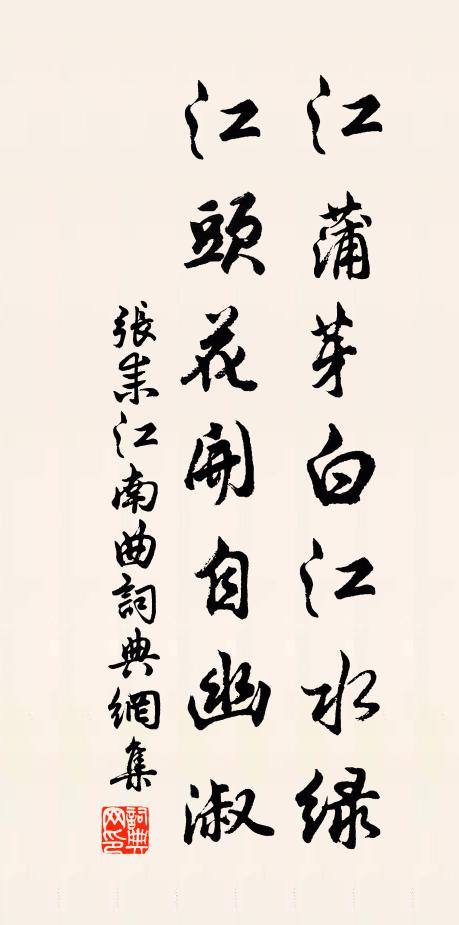 江蒲芽白江水緑
江頭花開自幽淑
張耒江南曲詞典網集
詞典网印